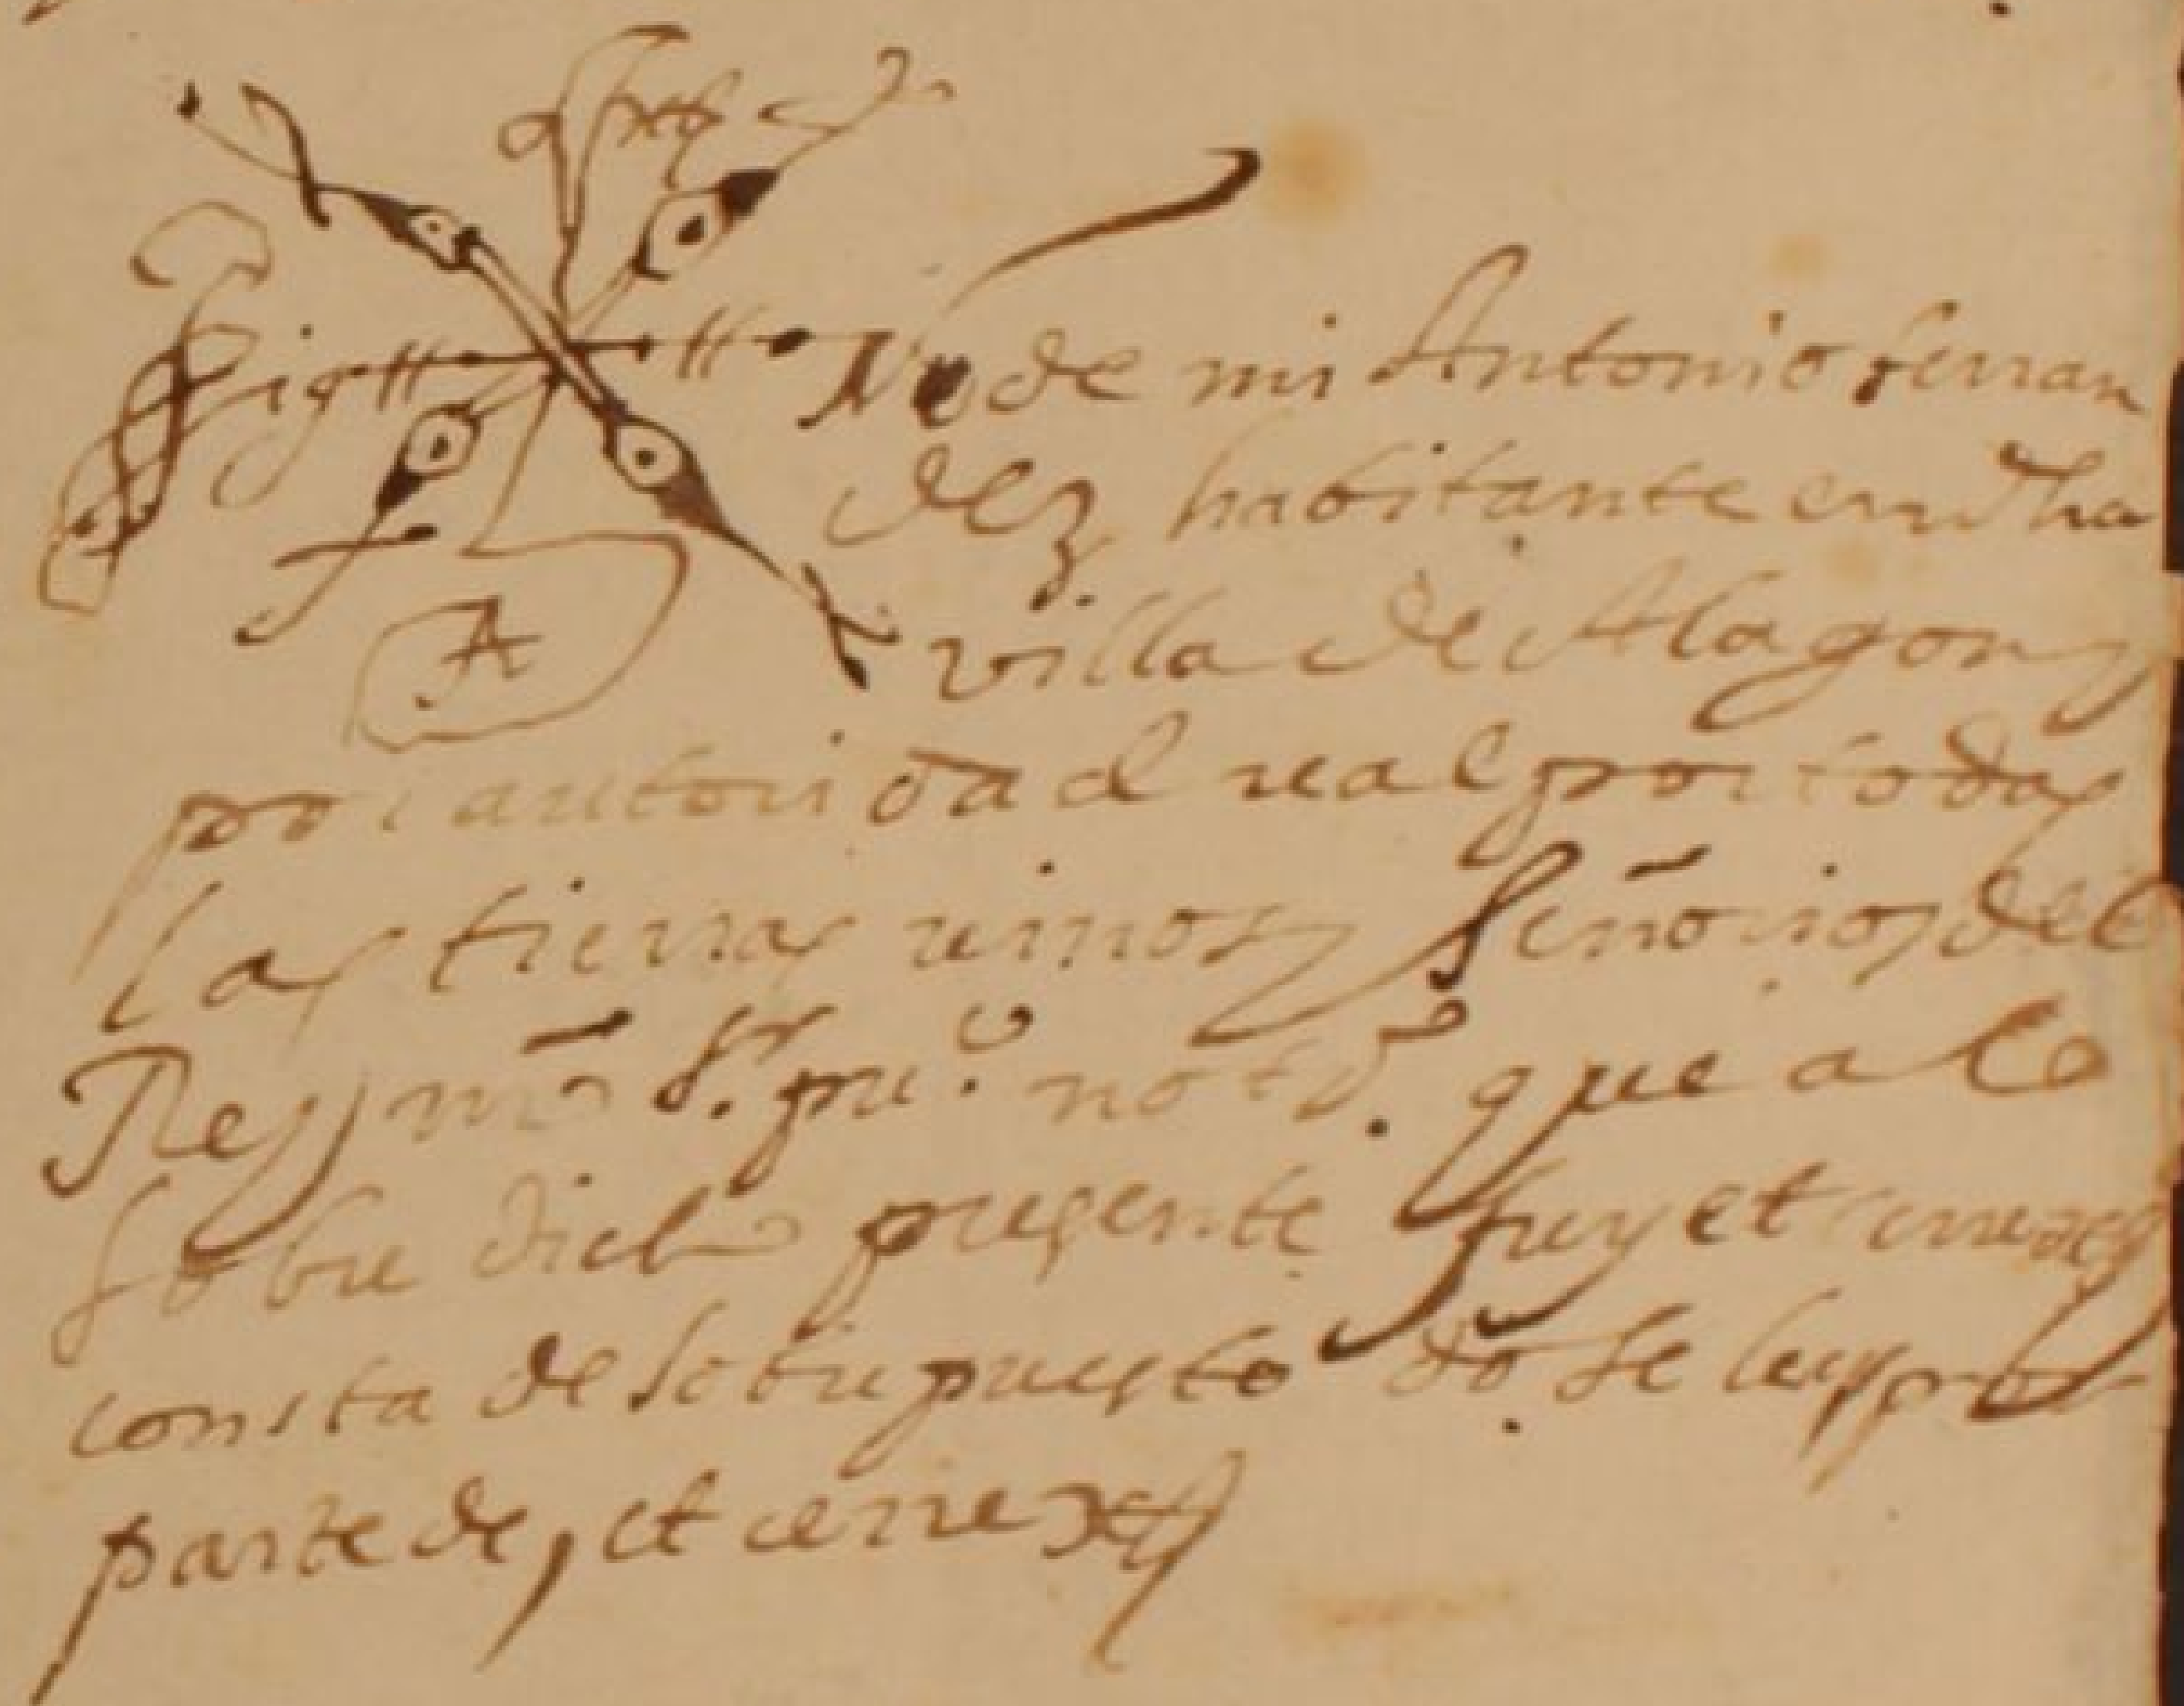 Sig++ ++ No de mi Antonio ferran
dez habitante en dha
villa de Alagon y
por autoridad real por todas
las tierras reinos y señorios del
Rey nro sr. puco. notº. que a lo
sobre dicho presente fuy et cerre
consta de sobre puesto do se lee
parte de, et cerre